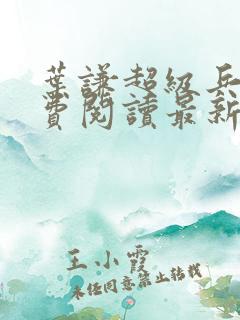 葉謙超級兵
費閱讀最新
王小霞
未经同意禁止转载